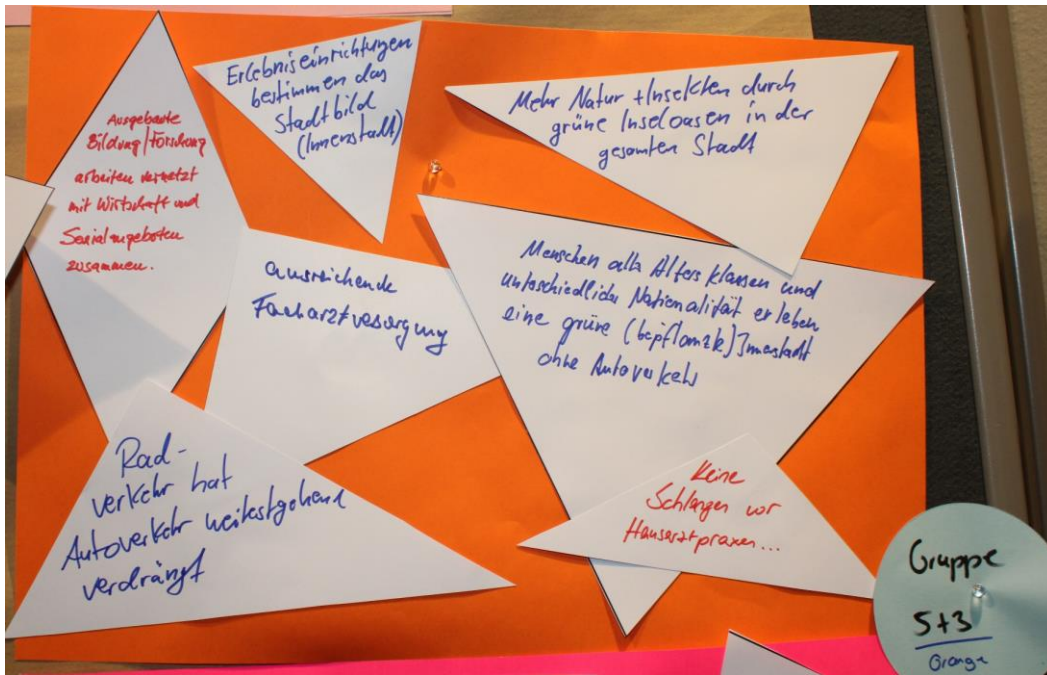 Ausgebaute
Bildung/Forschung
arbeiten vernetzt
mit Wirtschaft und
Sozialangeboten
zusammen.
Erlebniseinrichtungen
bestimmen das
Stadtbild
(Innenstadt)
Mehr Natur + Insekten durch
grüne Inseloasen in der
gesamten Stadt
ausreichende
Facharztversorgung
Menschen alle Altersklassen und
unterschiedlicher Nationalität erleben
eine grüne (bepflanzte) Innenstadt
ohne Autoverkehr
Rad-
verkehr hat
Autoverkehr weitestgehend
verdrängt
Keine
Schlangen vor
Hausarztpraxen...
Gruppe
5+3
Orange